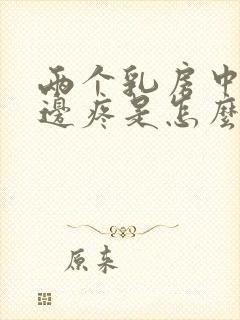 两个乳房中
邊疼是怎麼
原来